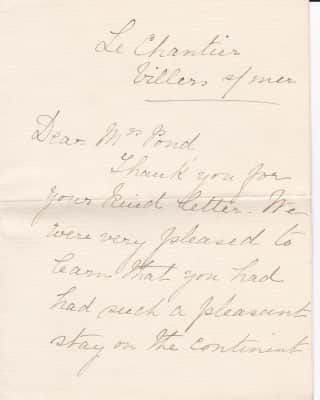 Le Chantier
Villers s/mer
Dear Mrs Pond
Thank you for
your kind letter. We
were very pleased to
learn that you had
had such a pleasant
stay on the continent